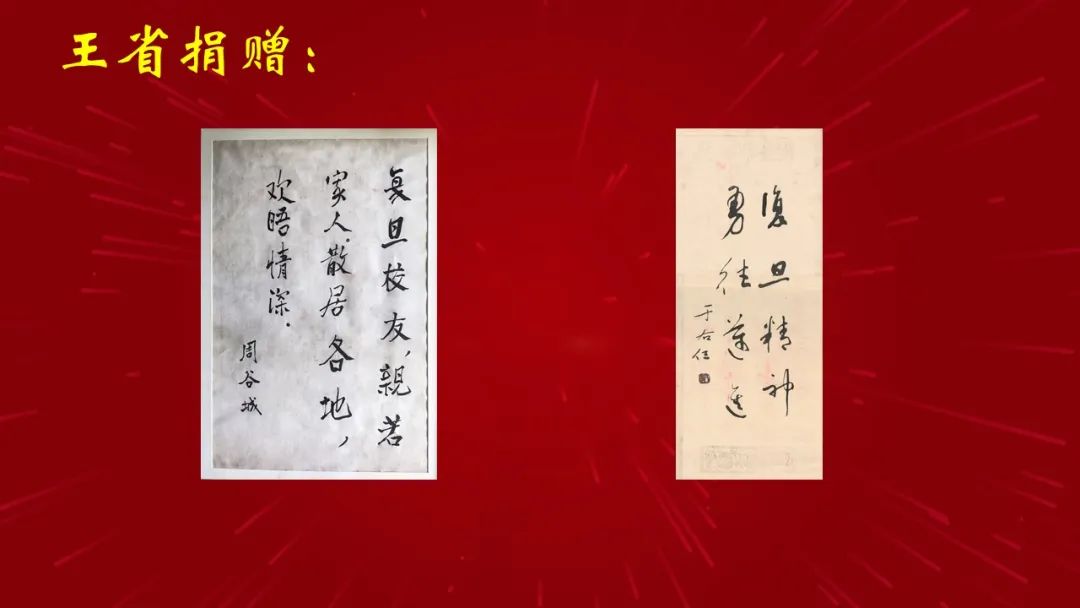 王省捐赠：
复旦校友，親若
家人.散居各地，
欢晤情深.
周谷城
復旦精神
勇往邁進
于右任